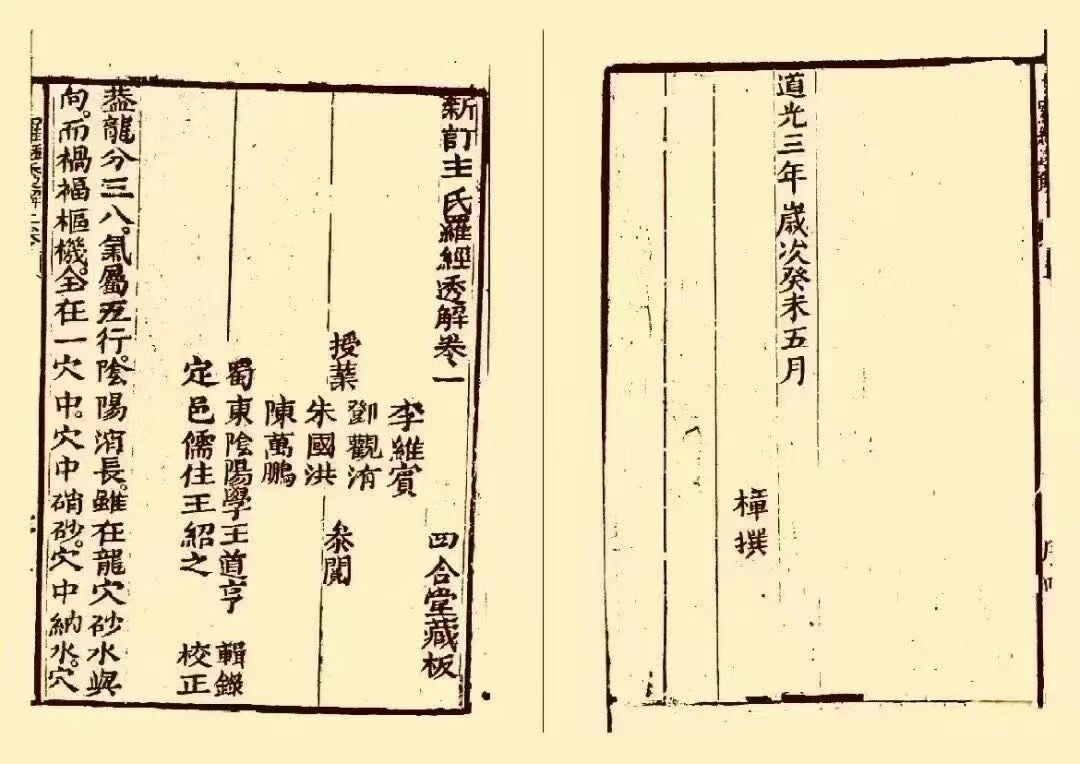 道光三年歲次癸未五月
樟撰
新訂王氏羅經透解卷一
四合堂藏板
李維賓
鄧觀洧
授業 朱國洪 叅閱
陳萬鵬
蜀東陰陽學王道亨 輯錄
定邑儒住王紹之 校正
葢龍分三八。氣屬五行。陰陽消長。雖在龍穴砂水與
向。而禍福樞機。全在一穴中。穴中硝砂。穴中納水。穴